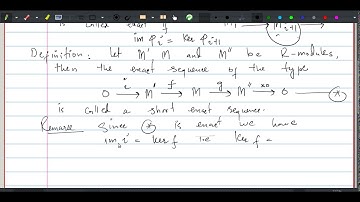 is called exact if
im φᵢ = ker φᵢ₊₁ Mᵢ₊₁
Definition: Let M' M and M'' be R-modules,
then the exact sequence of the type
0 →i M' →f M →g M'' →x0 0 — *
is called a short exact sequence.
Remark Since * is exact we have
im i = ker f i.e. ker f =
0